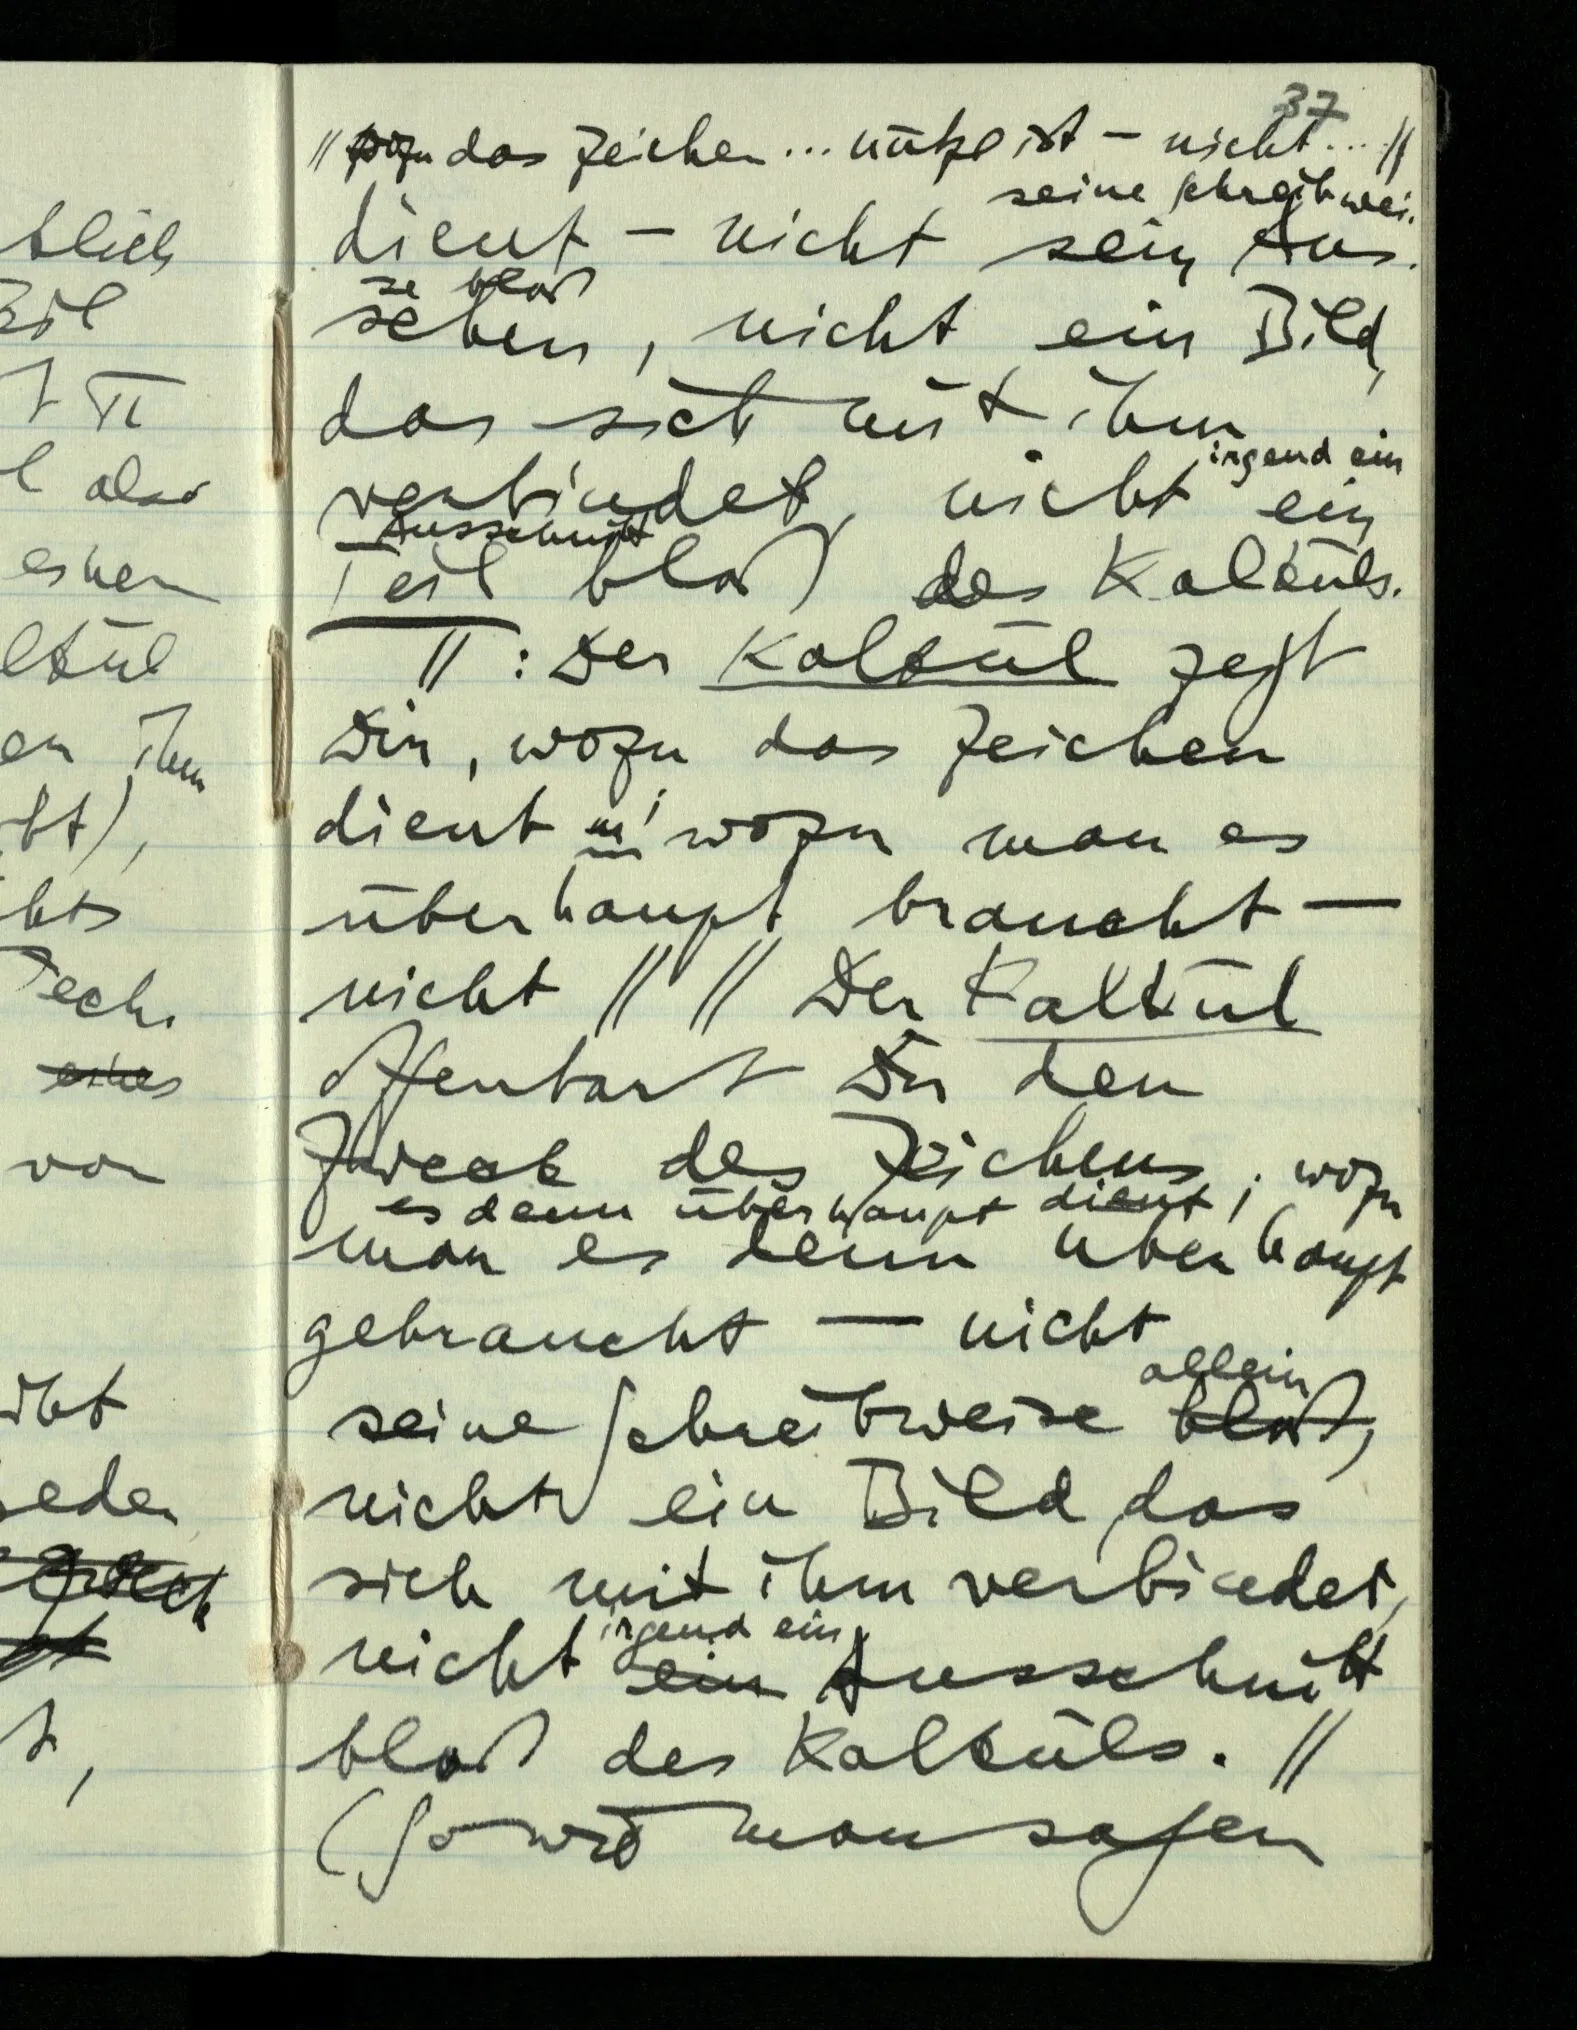 blich
π
l also
einen
lkül
en ihm
cht),
chts
Tech.
eines
von
eden
37
// wozu das Zeichen ... nütze ist — nicht ... //
seine Schreibwei.
dient — nicht sein Aus.
se bloß
sehen, nicht ein Bild,
das sich mit ihm
irgend ein
verbindet, nicht ein
Ausschnitt
Teil bloß des Kalküls.
// : Der Kalkül zeigt
Dir, wozu das Zeichen
dient u! wozu man es
überhaupt braucht —
nicht // // Der Kalkül
offenbart Dir den
Zweck des Zeichens, wozu
es denn überhaupt dient;
man es denn überhaupt
gebraucht — nicht
allein
seine Schreibweise bloß,
nicht ein Bild das
sich mit ihm verbindet,
irgend ein
nicht ein Ausschnitt
bloß des Kalküls. //
(So wird man sagen